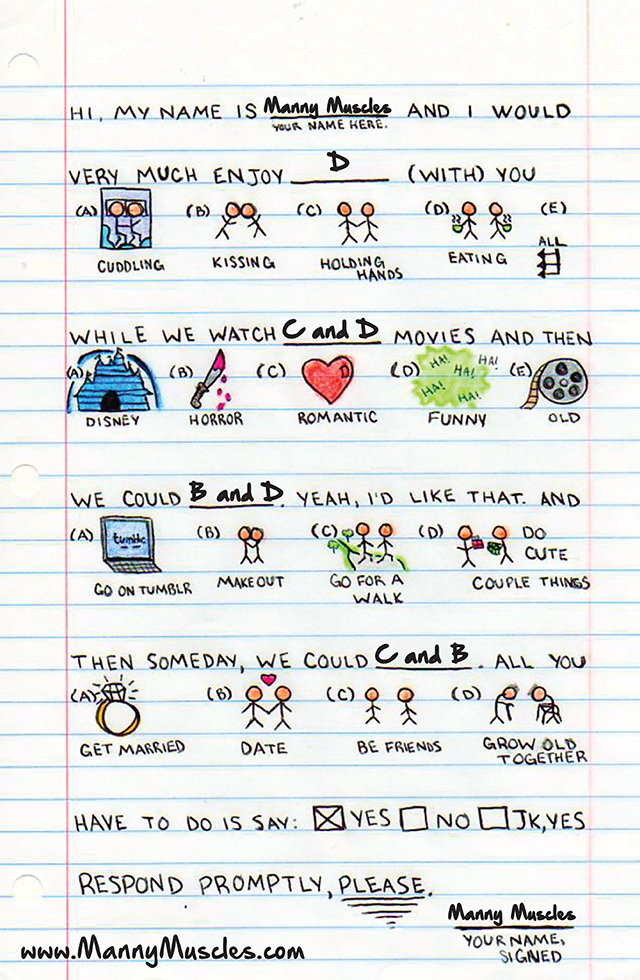 HI, MY NAME IS Manny Muscles AND I WOULD
YOUR NAME HERE.
VERY MUCH ENJOY D (WITH) YOU
(A) (B) (C) (D) (E)
ALL
CUDDLING KISSING HOLDING HANDS EATING
WHILE WE WATCH C and D MOVIES AND THEN
(A) (B) (C) (D) HA! HA! HA! HA! HA! (E)
DISNEY HORROR ROMANTIC FUNNY OLD
WE COULD B and D. YEAH, I'D LIKE THAT. AND
(A) tumblr (B) (C) (D) DO CUTE
GO ON TUMBLR MAKEOUT GO FOR A WALK COUPLE THINGS
THEN SOMEDAY, WE COULD C and B. ALL YOU
(A) (B) (C) (D)
GET MARRIED DATE BE FRIENDS GROW OLD TOGETHER
HAVE TO DO IS SAY: YES NO JK,YES
RESPOND PROMPTLY, PLEASE.
Manny Muscles
YOUR NAME,
SIGNED
www.MannyMuscles.com